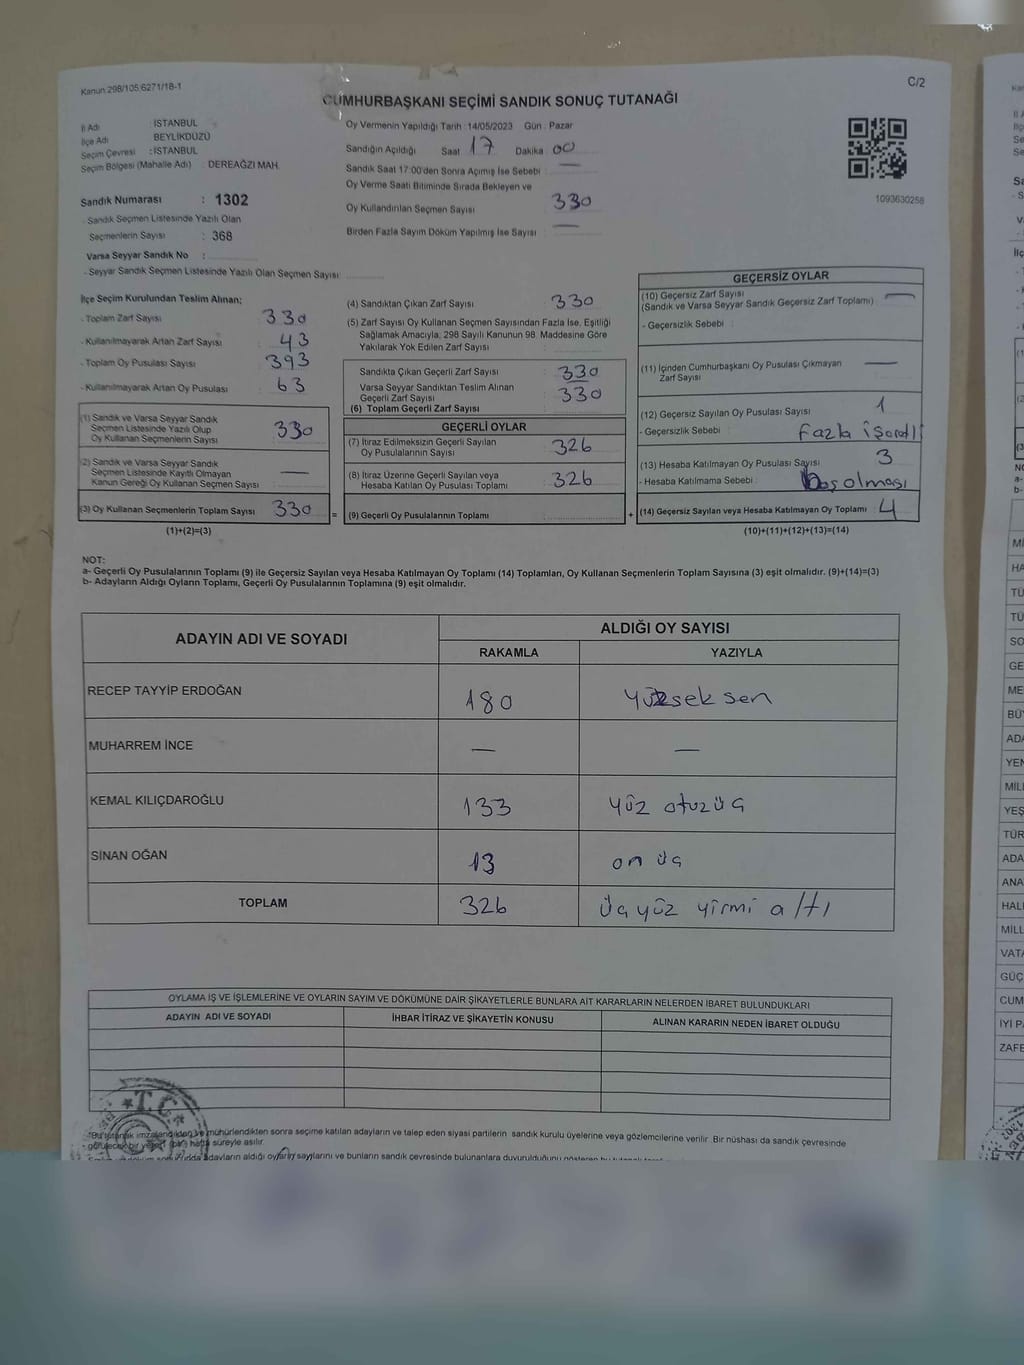 Kanun 298/105;6271/18-1
C/2
CUMHURBAŞKANI SEÇİMİ SANDIK SONUÇ TUTANAĞI
İl Adı : İSTANBUL
İlçe Adı BEYLİKDÜZÜ
Seçim Çevresi : İSTANBUL
Seçim Bölgesi (Mahalle Adı) : DEREAĞZI MAH.
Sandık Numarası : 1302
- Sandık Seçmen Listesinde Yazılı Olan
Seçmenlerin Sayısı : 368
Varsa Seyyar Sandık No :
- Seyyar Sandık Seçmen Listesinde Yazılı Olan Seçmen Sayısı
Oy Vermenin Yapıldığı Tarih : 14/05/2023 Gün : Pazar
Sandığın Açıldığı Saat 17 Dakika 00
Sandık Saat 17:00'den Sonra Açımış İse Sebebi : —
Oy Verme Saati Bitiminde Sırada Bekleyen ve
Oy Kullandırılan Seçmen Sayısı 330
Birden Fazla Sayım Döküm Yapılmış İse Sayısı —
1093630258
İlçe Seçim Kurulundan Teslim Alınan;
- Toplam Zarf Sayısı 330
- Kullanılmayarak Artan Zarf Sayısı 43
- Toplam Oy Pusulası Sayısı 393
- Kullanılmayarak Artan Oy Pusulası 63
(1) Sandık ve Varsa Seyyar Sandık
Seçmen Listesinde Yazılı Olup
Oy Kullanan Seçmenlerin Sayısı 330
(2) Sandık ve Varsa Seyyar Sandık
Seçmen Listesinde Kayıtlı Olmayan
Kanun Gereği Oy Kullanan Seçmen Sayısı —
(3) Oy Kullanan Seçmenlerin Toplam Sayısı 330 =
(1)+(2)=(3)
(4) Sandıktan Çıkan Zarf Sayısı 330
(5) Zarf Sayısı Oy Kullanan Seçmen Sayısından Fazla İse, Eşitliği
Sağlamak Amacıyla, 298 Sayılı Kanunun 98. Maddesine Göre
Yakılarak Yok Edilen Zarf Sayısı
Sandıkta Çıkan Geçerli Zarf Sayısı 330
Varsa Seyyar Sandıktan Teslim Alınan
Geçerli Zarf Sayısı 330
(6) Toplam Geçerli Zarf Sayısı
GEÇERLİ OYLAR
(7) İtiraz Edilmeksizin Geçerli Sayılan
Oy Pusulalarının Sayısı 326
(8) İtiraz Üzerine Geçerli Sayılan veya
Hesaba Katılan Oy Pusulası Toplamı 326
(9) Geçerli Oy Pusulalarının Toplamı +
GEÇERSİZ OYLAR
(10) Geçersiz Zarf Sayısı —
(Sandık ve Varsa Seyyar Sandık Geçersiz Zarf Toplamı)
- Geçersizlik Sebebi :
(11) İçinden Cumhurbaşkanı Oy Pusulası Çıkmayan —
Zarf Sayısı
(12) Geçersiz Sayılan Oy Pusulası Sayısı 1
- Geçersizlik Sebebi fazla işaretli
(13) Hesaba Katılmayan Oy Pusulası Sayısı 3
- Hesaba Katılmama Sebebi : boş olması
(14) Geçersiz Sayılan veya Hesaba Katılmayan Oy Toplamı 4
(10)+(11)+(12)+(13)=(14)
NOT:
a- Geçerli Oy Pusulalarının Toplamı (9) ile Geçersiz Sayılan veya Hesaba Katılmayan Oy Toplamı (14) Toplamları, Oy Kullanan Seçmenlerin Toplam Sayısına (3) eşit olmalıdır. (9)+(14)=(3)
b- Adayların Aldığı Oyların Toplamı, Geçerli Oy Pusulalarının Toplamına (9) eşit olmalıdır.
ADAYIN ADI VE SOYADI
ALDIĞI OY SAYISI
RAKAMLA YAZIYLA
RECEP TAYYİP ERDOĞAN 180 yüzseksen
MUHARREM İNCE — —
KEMAL KILIÇDAROĞLU 133 yüz otuzüç
SİNAN OĞAN 13 on üç
TOPLAM 326 üçyüz yirmi altı
OYLAMA İŞ VE İŞLEMLERİNE VE OYLARIN SAYIM VE DÖKÜMÜNE DAİR ŞİKAYETLERLE BUNLARA AİT KARARLARIN NELERDEN İBARET BULUNDUKLARI
ADAYIN ADI VE SOYADI İHBAR İTİRAZ VE ŞİKAYETİN KONUSU ALINAN KARARIN NEDEN İBARET OLDUĞU
T.C.
*Bu tutanak imzalandıktan ve mühürlendikten sonra seçime katılan adayların ve talep eden siyasi partilerin sandık kurulu üyelerine veya gözlemcilerine verilir. Bir nüshası da sandık çevresinde
görülecek bir yere 1 (bir) hafta süreyle asılır.
adayların aldığı oyların sayılarını ve bunların sandık çevresinde bulunanlara duyurulduğunu